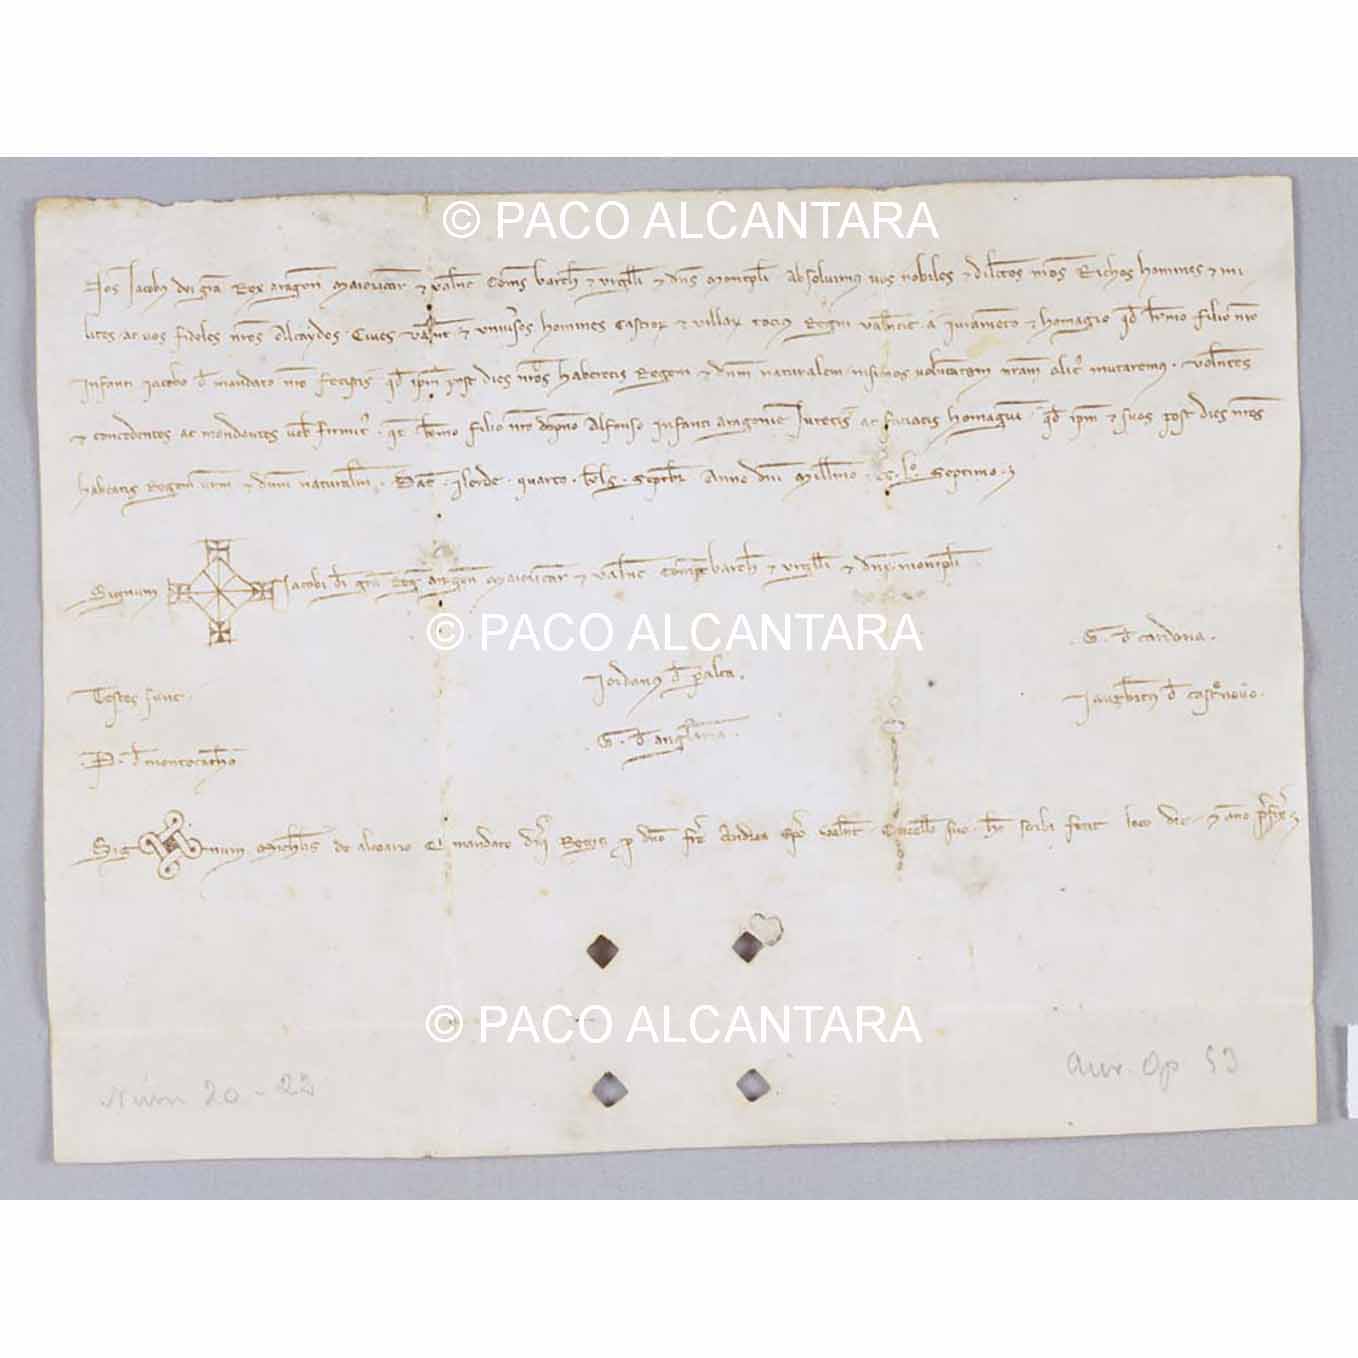 © PACO ALCANTARA
Nos Jacobus dei gra Rex Aragon Maioricar & Valenc Comes Barch & Urgelli & dns Montispli absolvimus vos nobiles & dilectos nros Richos homines & mi
lites ac vos fideles nros Alcaydos Cives Valenc & universos homines Castror & villar tocius Regni Valencie a iuramento & homagio qd km̄o filio nro
Infanti Jacobo de mandato nro fecistis qd ipm post dies nros haberetis Regem & dnm naturalem nisi nos voluntatem nram alic mutaremus. volentes
& concedentes ac mandantes vob firmit. qt km̄o filio nro dopno Alfonso Infanti Aragonie Juretis ac faciatis homagium. qd ipm & suos post dies nros
habeatis Regem vrm & dnm naturalem. Dat. Ilerde. quarto. kls. Septembr Anno dni Millmo. CC. Lo. Septimo.
Signum Jacobi di gra Reg Aragon Maioricar & Valenc Comit Barch & Urgelli & dni Montispli.
© PACO ALCANTARA
G. d Cardona.
Testes sunt.
Jordanus d
Jaucbtus d Castro novo.
P. d Montecateno
G. d Anglaria.
Sig num Michlis de Alcoario q mandato dni Regis p dno fre Andrea epo Valenc Cancell suo. hc scribi fecit loco die & anno prefixis
© PACO ALCANTARA
Núm 20-22
Aur. Op 53